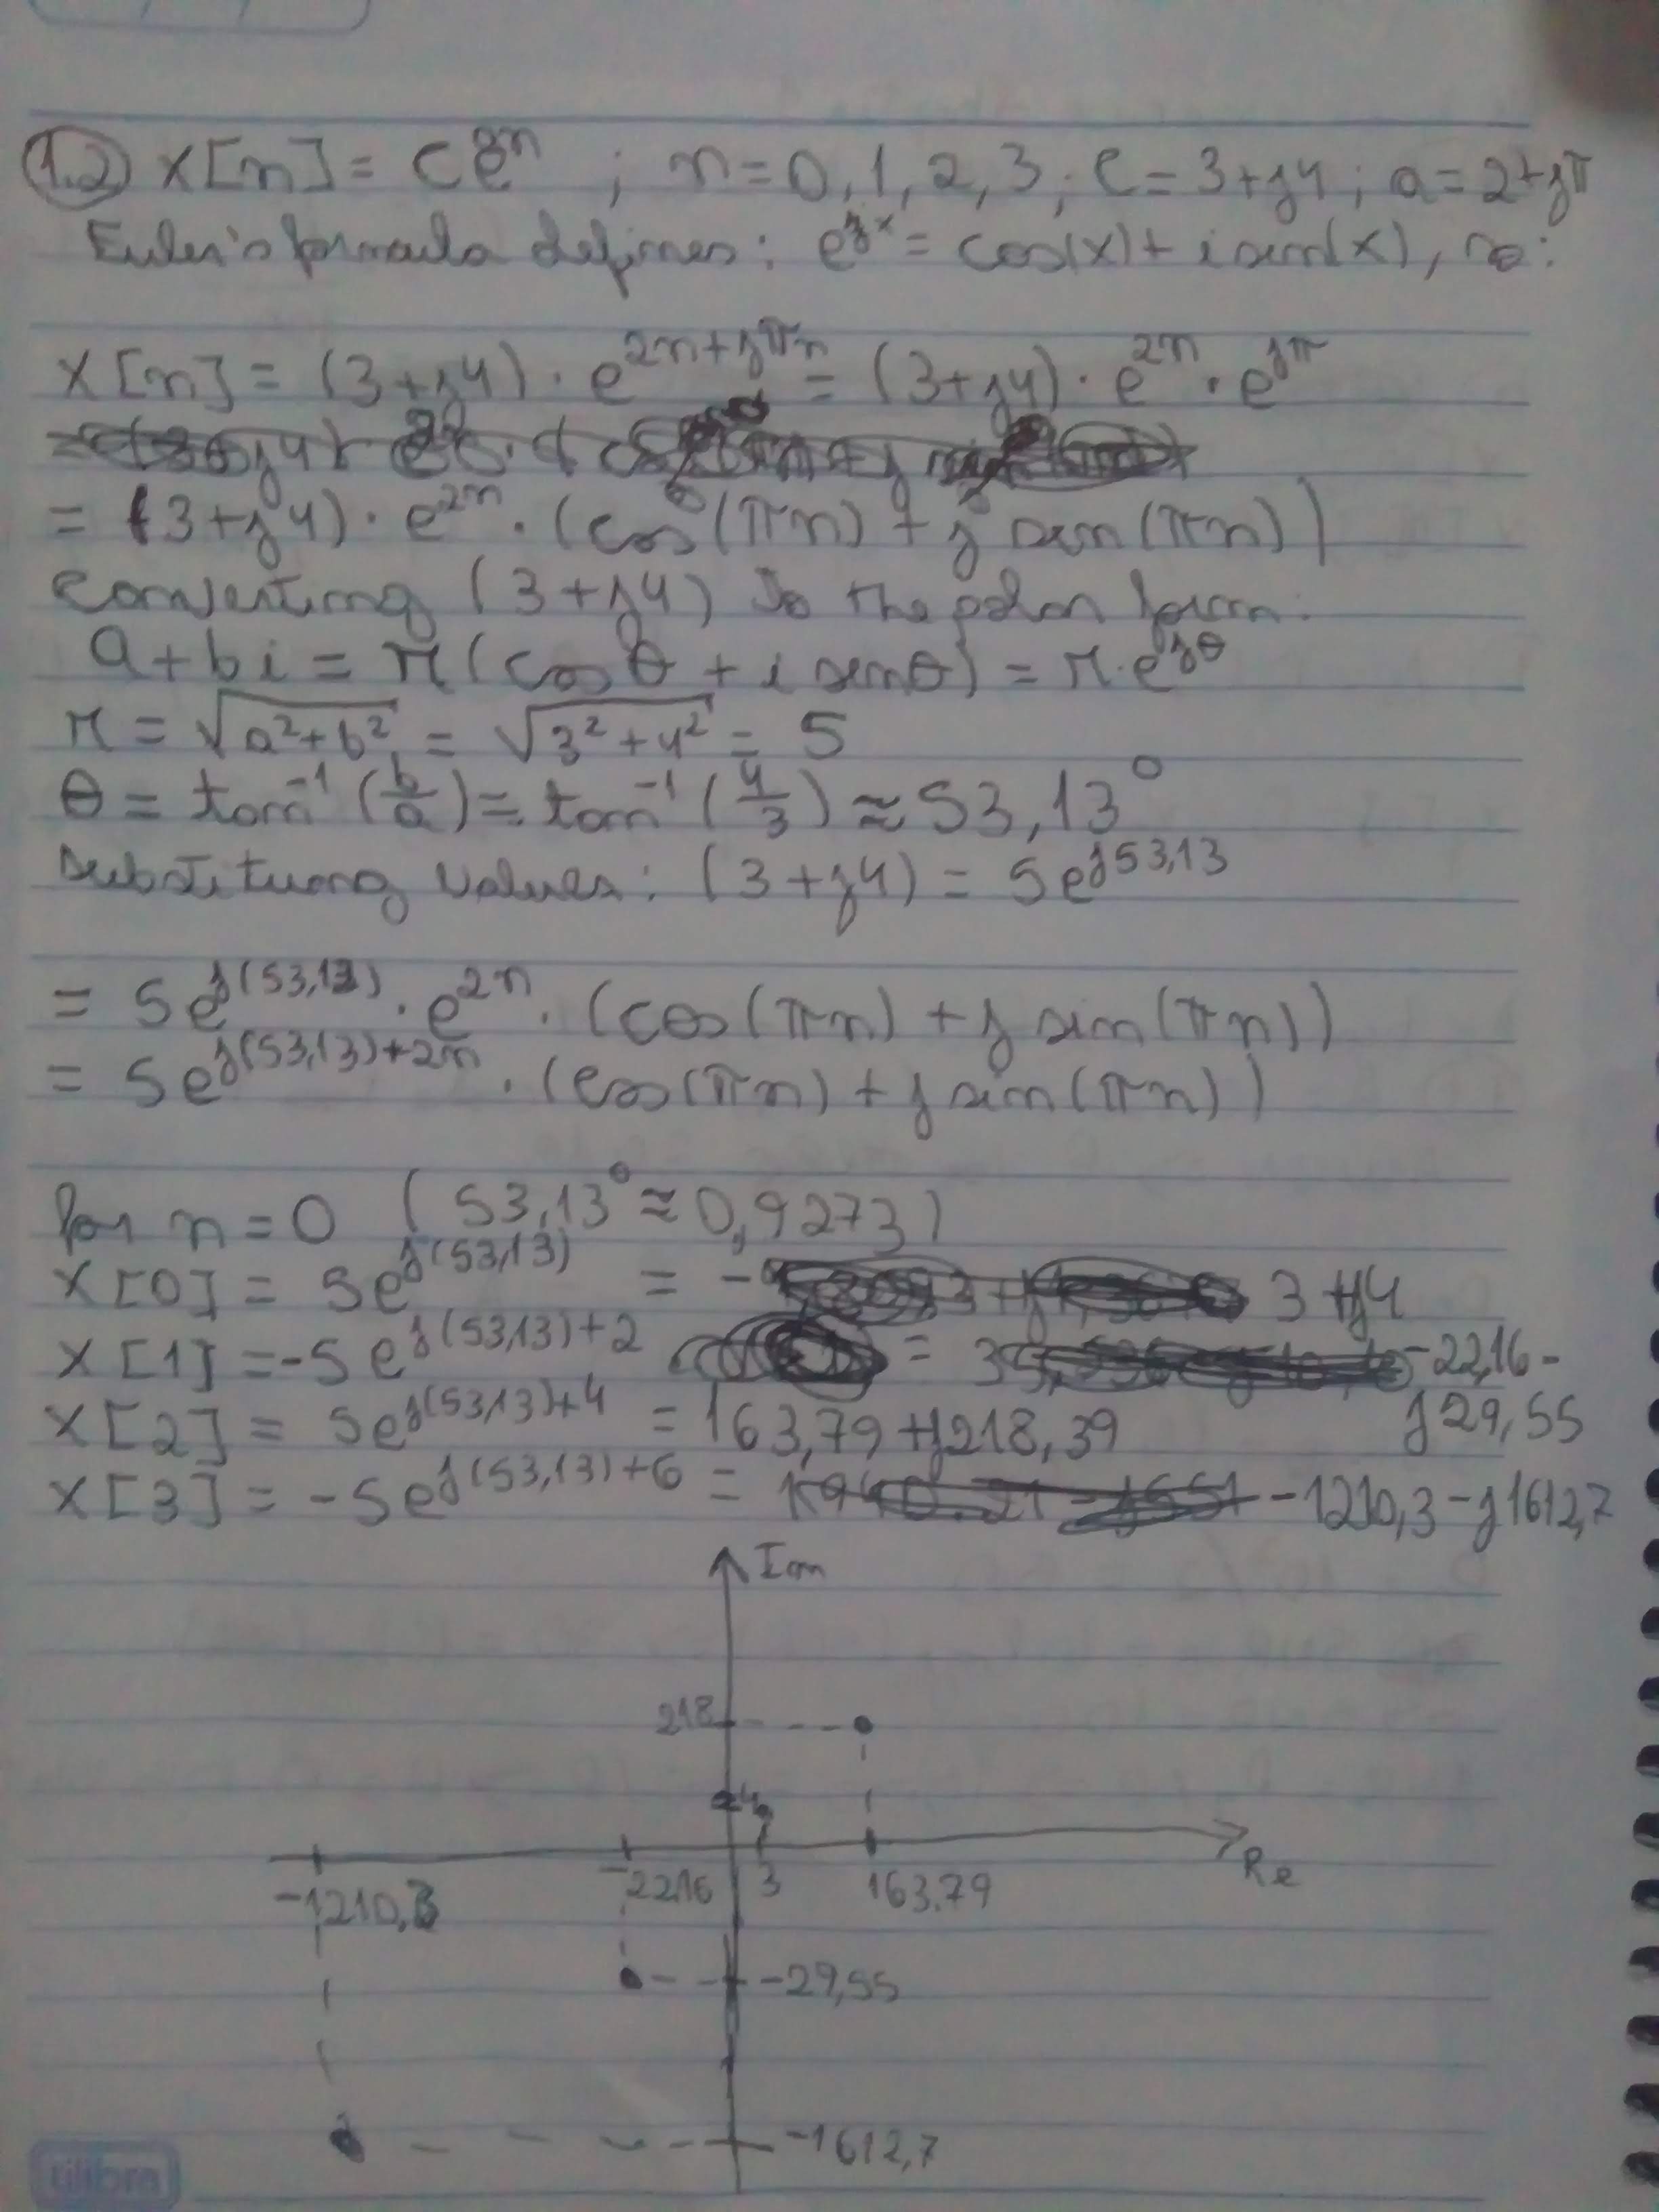 1.2) x[n] = C e^{an} ; n = 0, 1, 2, 3 ; C = 3+j4 ; a = 2+jπ
Euler's formula defines: e^{jx} = cos(x) + i sen(x), so:
x[n] = (3+j4) · e^{2n+jπn} = (3+j4) · e^{2n} · e^{jπ}
= (3+j4) · e^{2n} · (cos(πn) + j sen(πn))
Converting (3+j4) to the polar form:
a+bi = r(cosθ + i senθ) = r·e^{jθ}
r = √(a²+b²) = √(3²+4²) = 5
θ = tan⁻¹(b/a) = tan⁻¹(4/3) ≈ 53,13°
Substituing values: (3+j4) = 5e^{j53,13}
= 5e^{j(53,13)} · e^{2n} · (cos(πn) + j sin(πn))
= 5e^{j(53,13)+2n} · (cos(πn) + j sin(πn))
for n = 0 (53,13° ≈ 0,9273)
x[0] = 5e^{j(53,13)} = 3+j4
x[1] = -5e^{j(53,13)+2} = -22,16 -
j29,55
x[2] = 5e^{j(53,13)+4} = 163,79+j218,39
x[3] = -5e^{j(53,13)+6} = -1210,3-j1612,7
Im
218
4
Re
-1210,3 -22,16 3 163,79
-29,55
-1612,7
tilibra